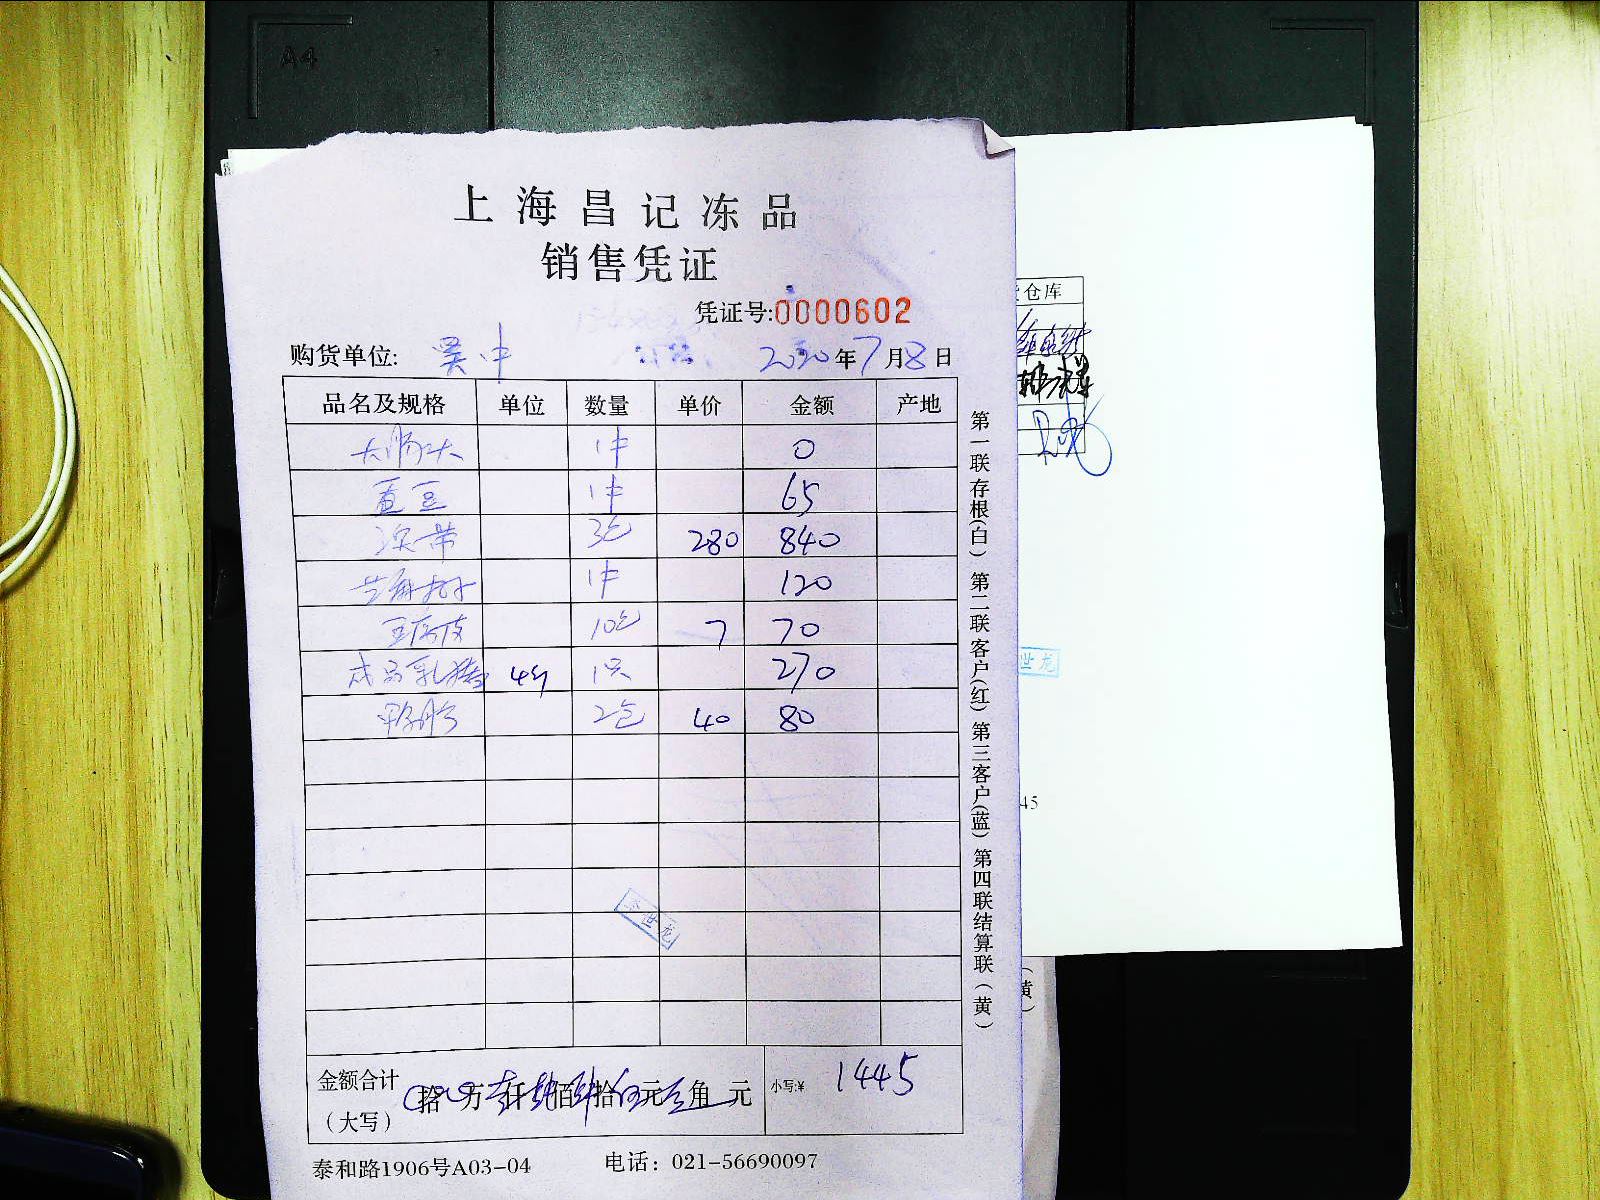 A4
上海昌记冻品
销售凭证
凭证号:0000602
购货单位: 吴中 2020年7月8日
品名及规格 单位 数量 单价 金额 产地
大肠头 1件 0
蚕豆 1件 65
3包 280 840
芝麻 1件 120
豆腐皮 10包 7 70
成品乳猪 4斤 1只 270
鸭肫 2包 40 80
李世龙
金额合计 拾 万 仟 佰 拾 元 角 元 小写:¥ 1445
(大写)
泰和路1906号A03-04 电话: 021-56690097
第一联存根(白) 第二联客户(红) 第三客户(蓝) 第四联结算联(黄)
仓库
世龙
45
黄)